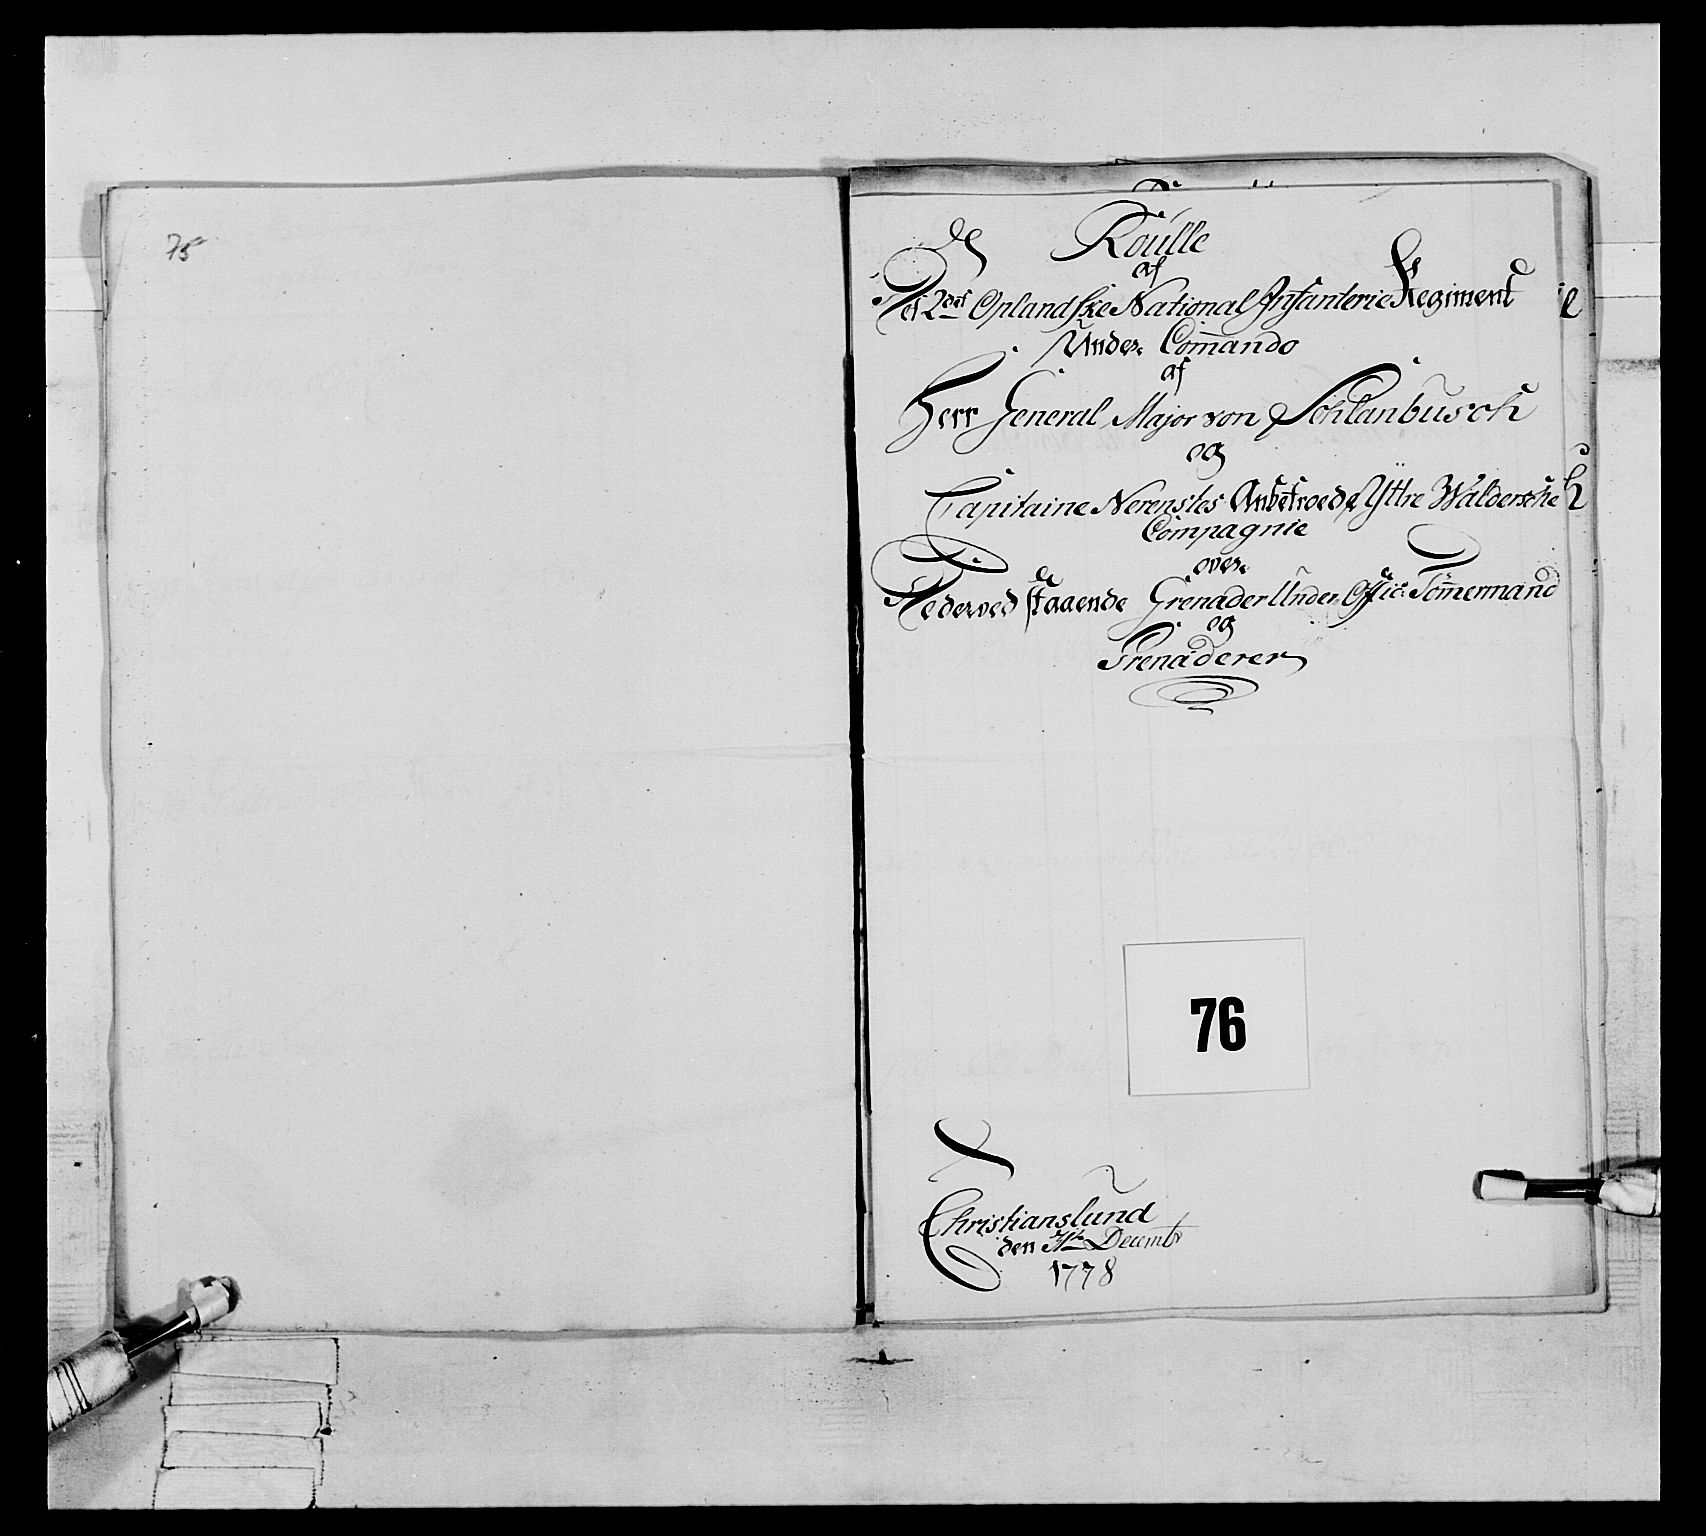 75
Roulle
af
Det 2det Oplandske National Infanterie Regiment
Under Com̅ando
af
Herr General Major von Schlanbusch
og
Capitaine Nerenstes Anbetroede Yttre Walderske
Compagnie
over
Nederved staaende Grenader Under Offic: Töm̅ermand
og
Grenaderer
76
Christianslund
den Decembr
1778